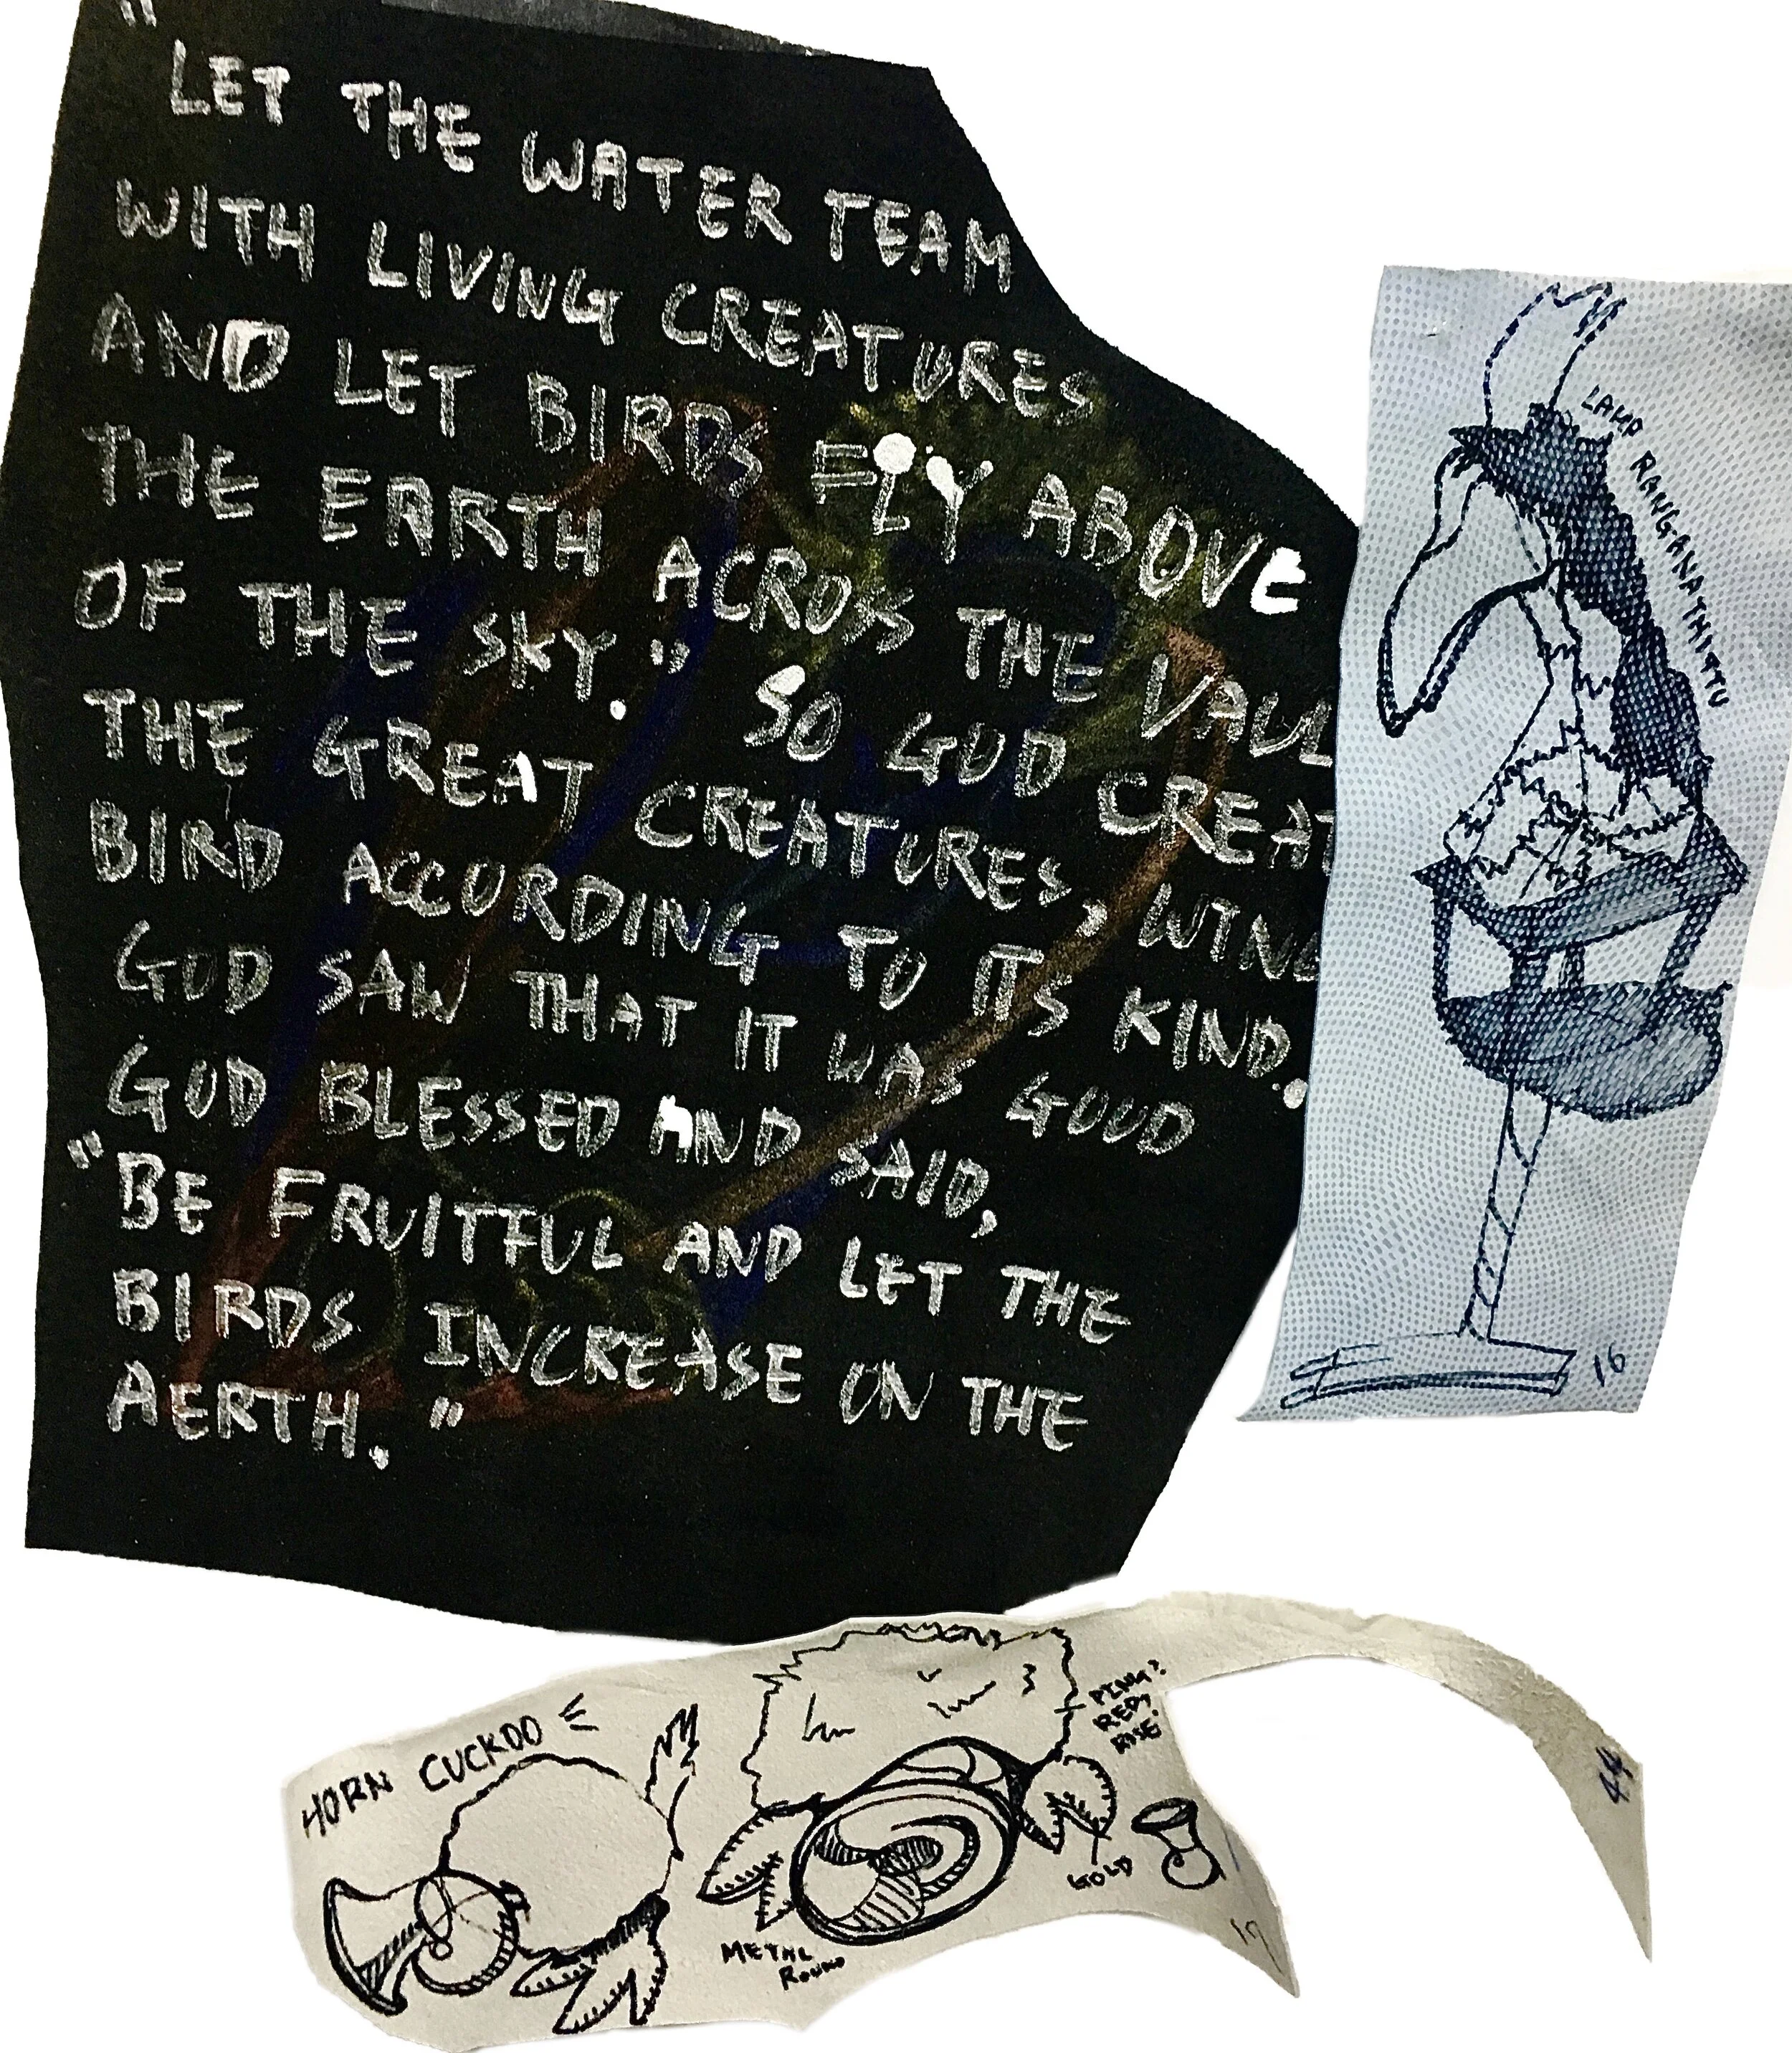 "
LET THE WATER TEAM
WITH LIVING CREATURES
AND LET BIRDS FLY ABOVE
THE EARTH ACROSS THE VAUL
OF THE SKY." SO GOD CREAT
THE GREAT CREATURES, WING
BIRD ACCORDING TO ITS KIND.
GOD SAW THAT IT WAS GOOD
GOD BLESSED AND SAID,
"BE FRUITFUL AND LET THE
BIRDS INCREASE ON THE
AERTH."
LAMP RANGANATHITTU
16
HORN CUCKOO
PING?
RED?
RISE?
GOLD
METAL
ROUND
19
44